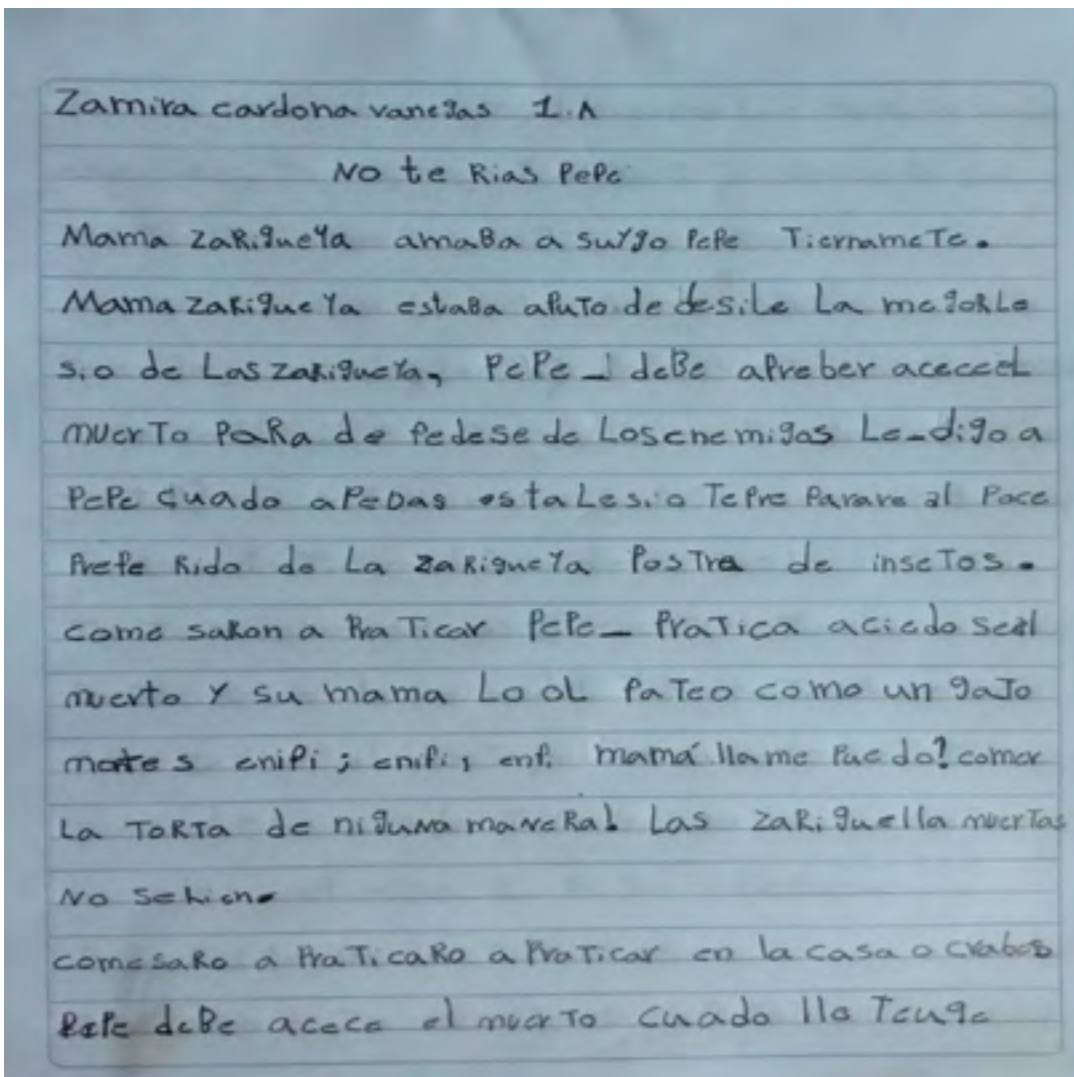 Zamira cardona vanegas 1.A
No te Rias PePe
Mama ZaRigueYa amaBa a suygo PePe TiernameTe.
Mama zaRigueYa estaBa aPuTo de desile La megoRLe
sio de Las zaRigueYa, PePe _ deBe aPreber acecel
muerTo PaRa de fedese de Los enemigos Le_digo a
PePe cuado aPeDas estaLesio TePre Parare al Pace
Prefe Rido de La zaRigueYa PosTre de inseTos.
come saRon a PraTicar PePe_ PraTica aciedo seel
muerto Y su mama Lo oL faTeo como un gaTo
montes enifi ; enifi, enf. mamá llame Puedo? comer
La ToRTa de niguna maneRa! Las zaRiguella muerTas
No seRien.
comesaRo a PraTicaRo a PraTicar en la casa o
PePe deBe acece el muerTo cuado llo Tenge